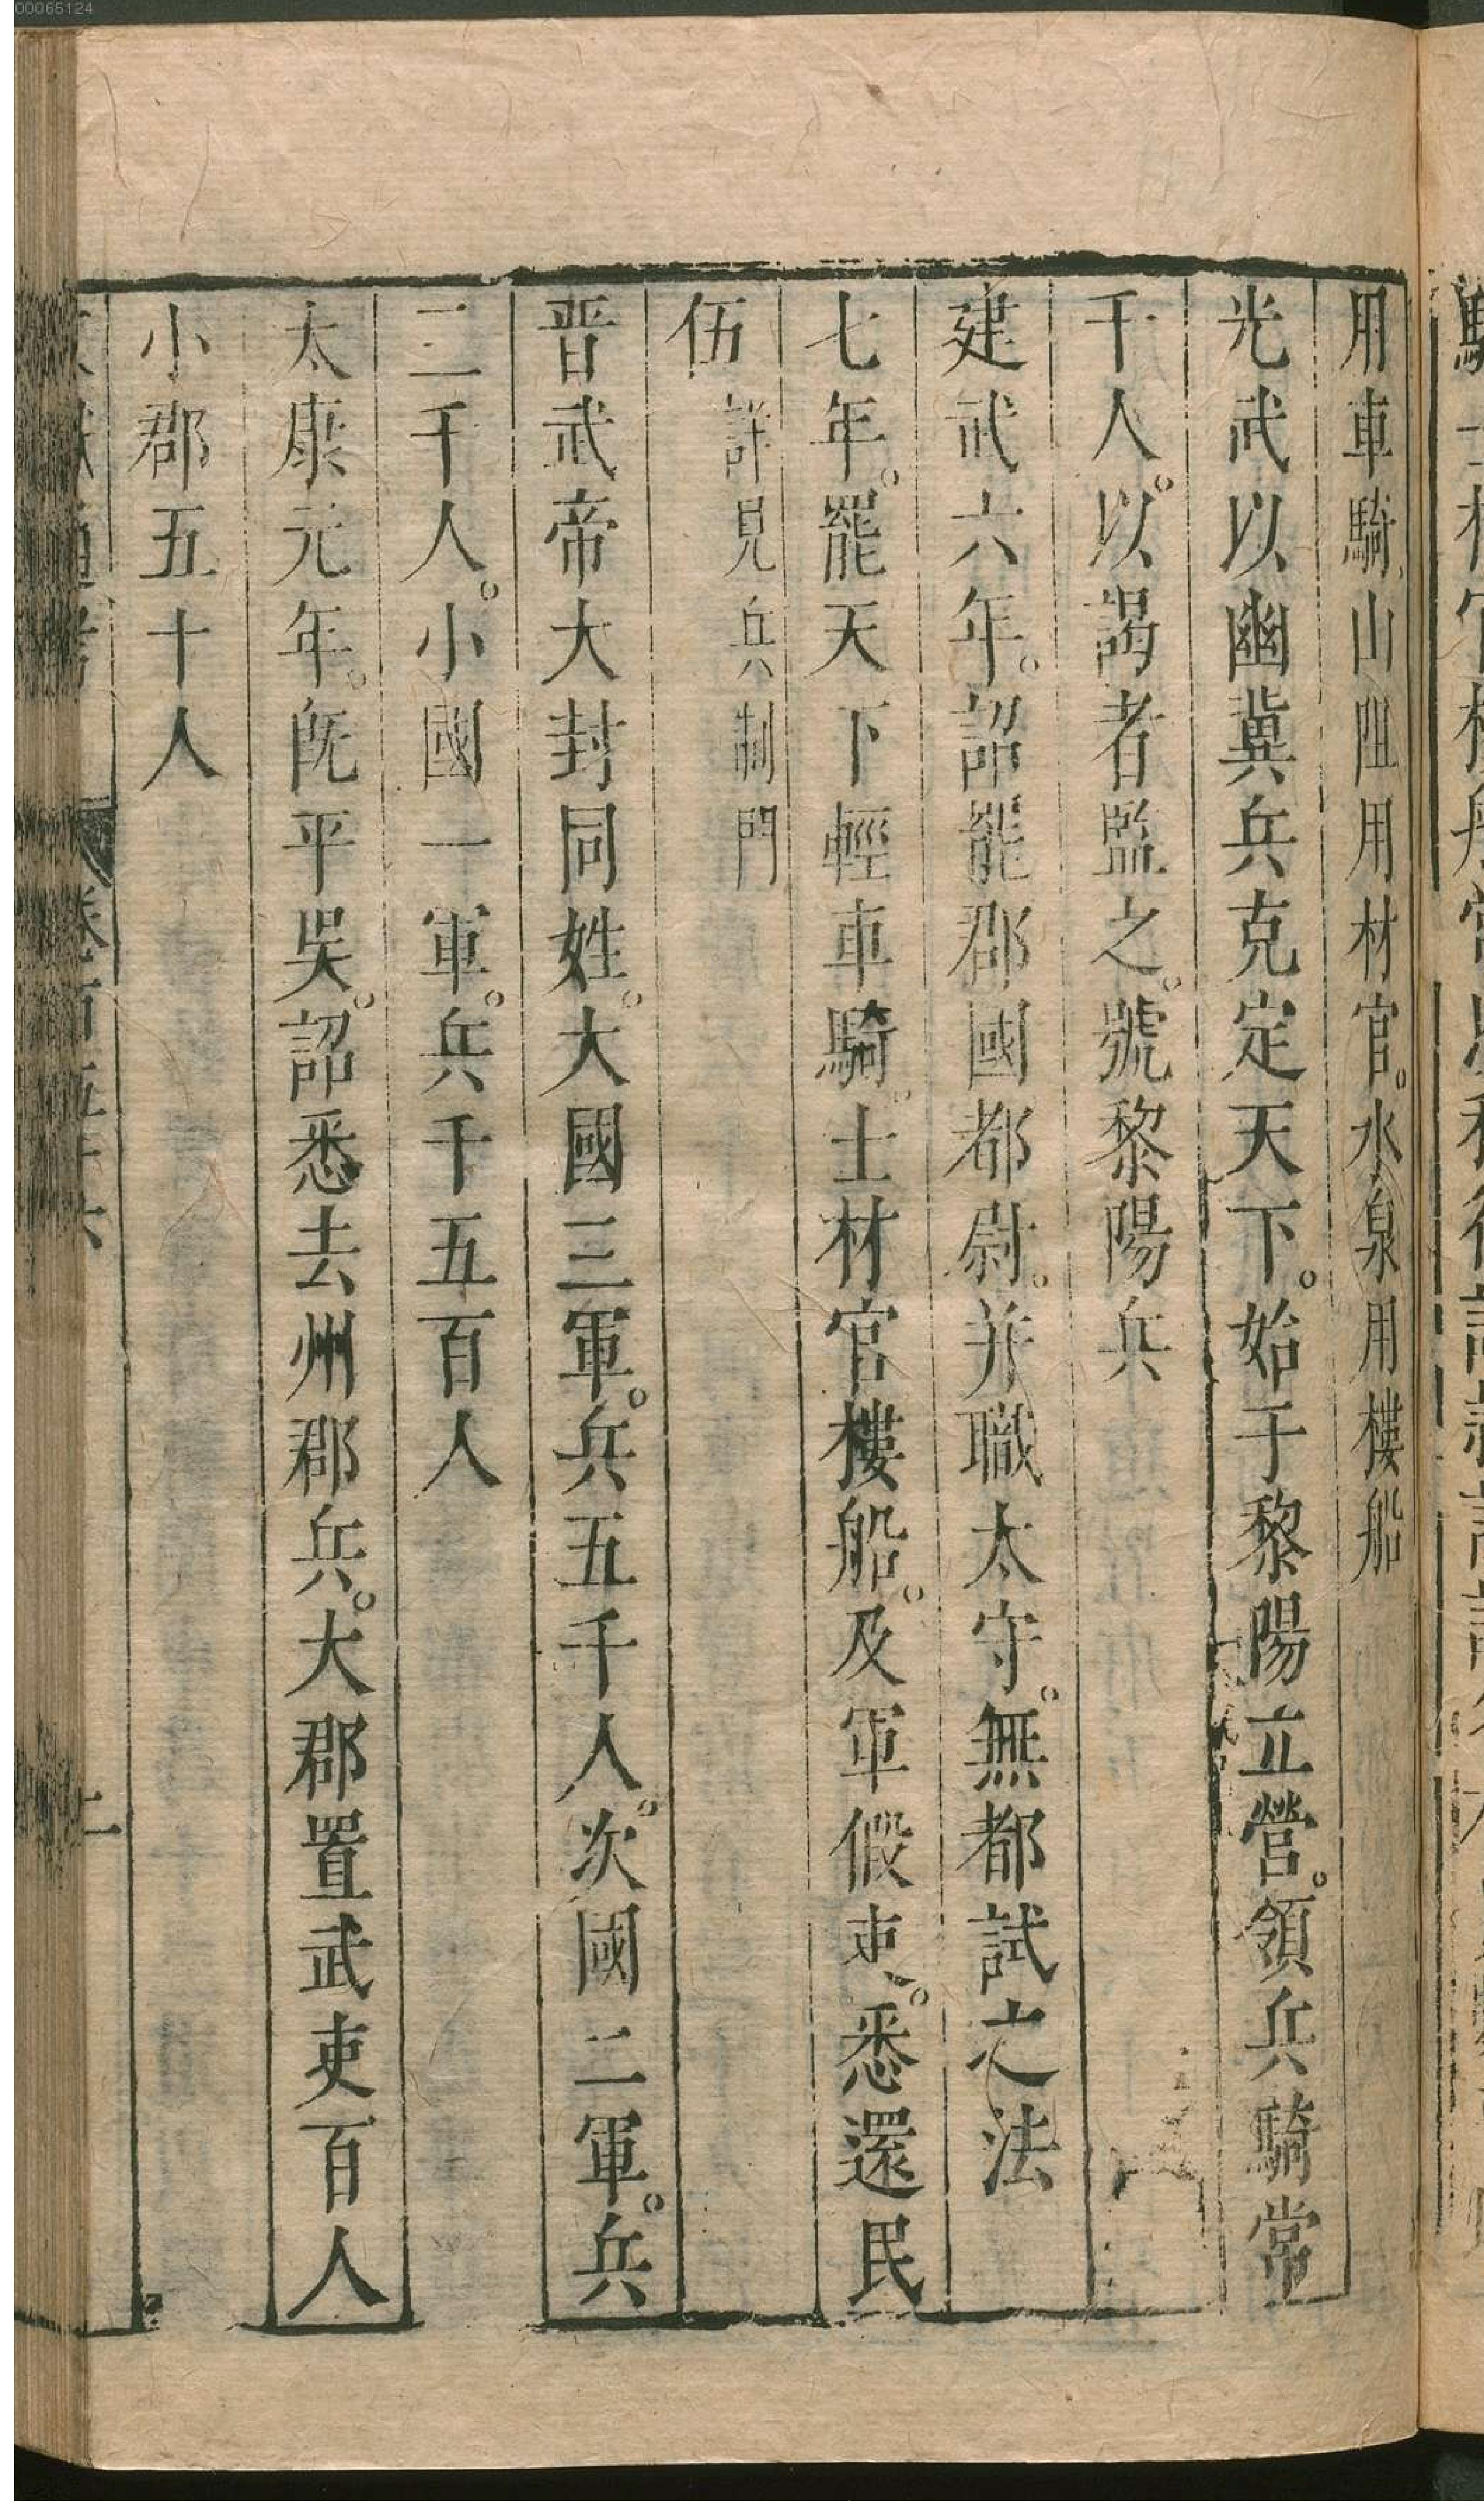 00065124
用車騎山阻用材官。水泉用樓船
光武以幽冀兵克定天下。始于黎陽立營。領兵騎常
千人。以謁者監之。號黎陽兵
建武六年。詔罷郡國都尉。并職太守。無都試之法
七年。罷天下輕車騎。士材官樓船。及軍假吏。悉還民
伍詳見兵制門
晋武帝大封同姓。大國三軍。兵五千人。次國二軍。兵
二千人。小國一軍。兵千五百人
太康元年。旣平吳。詔悉去州郡兵。大郡置武吏百人
小郡五十人
二